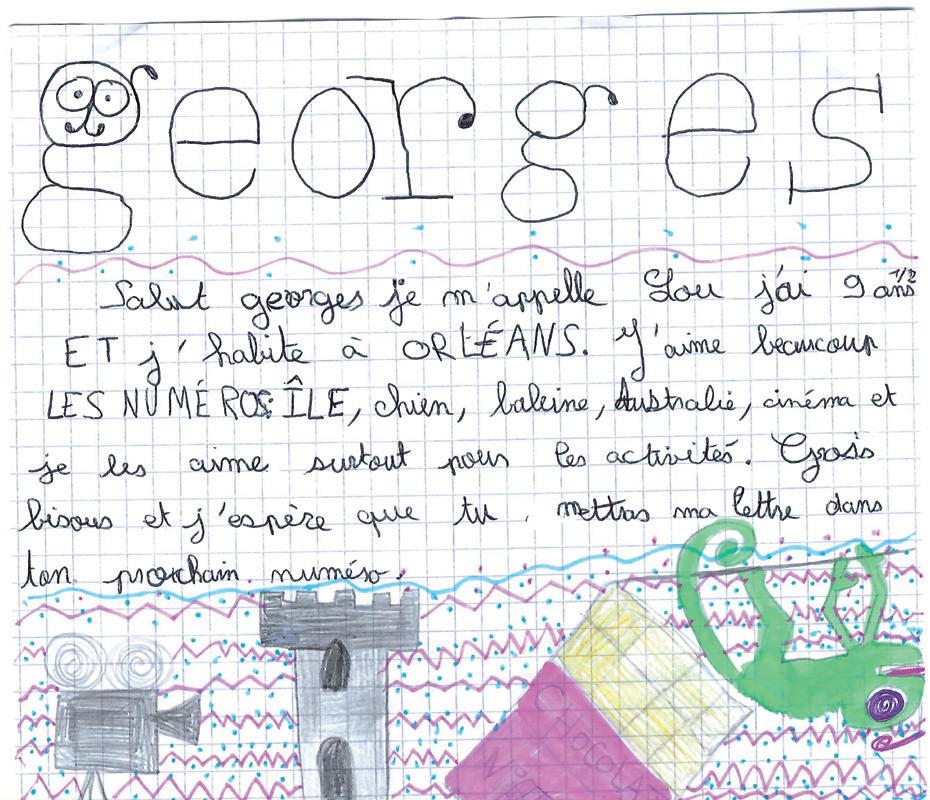 georges
Salut georges je m'appelle Lou j'ai 9 ans 1/2
ET j'habite à ORLÉANS. J'aime beaucoup
LES NUMÉROS: ÎLE, chien, baleine, Australie, cinéma et
je les aime surtout pour les activités. Gros
bisous et j'espère que tu mettras ma lettre dans
ton prochain numéro.
CHOCOLA